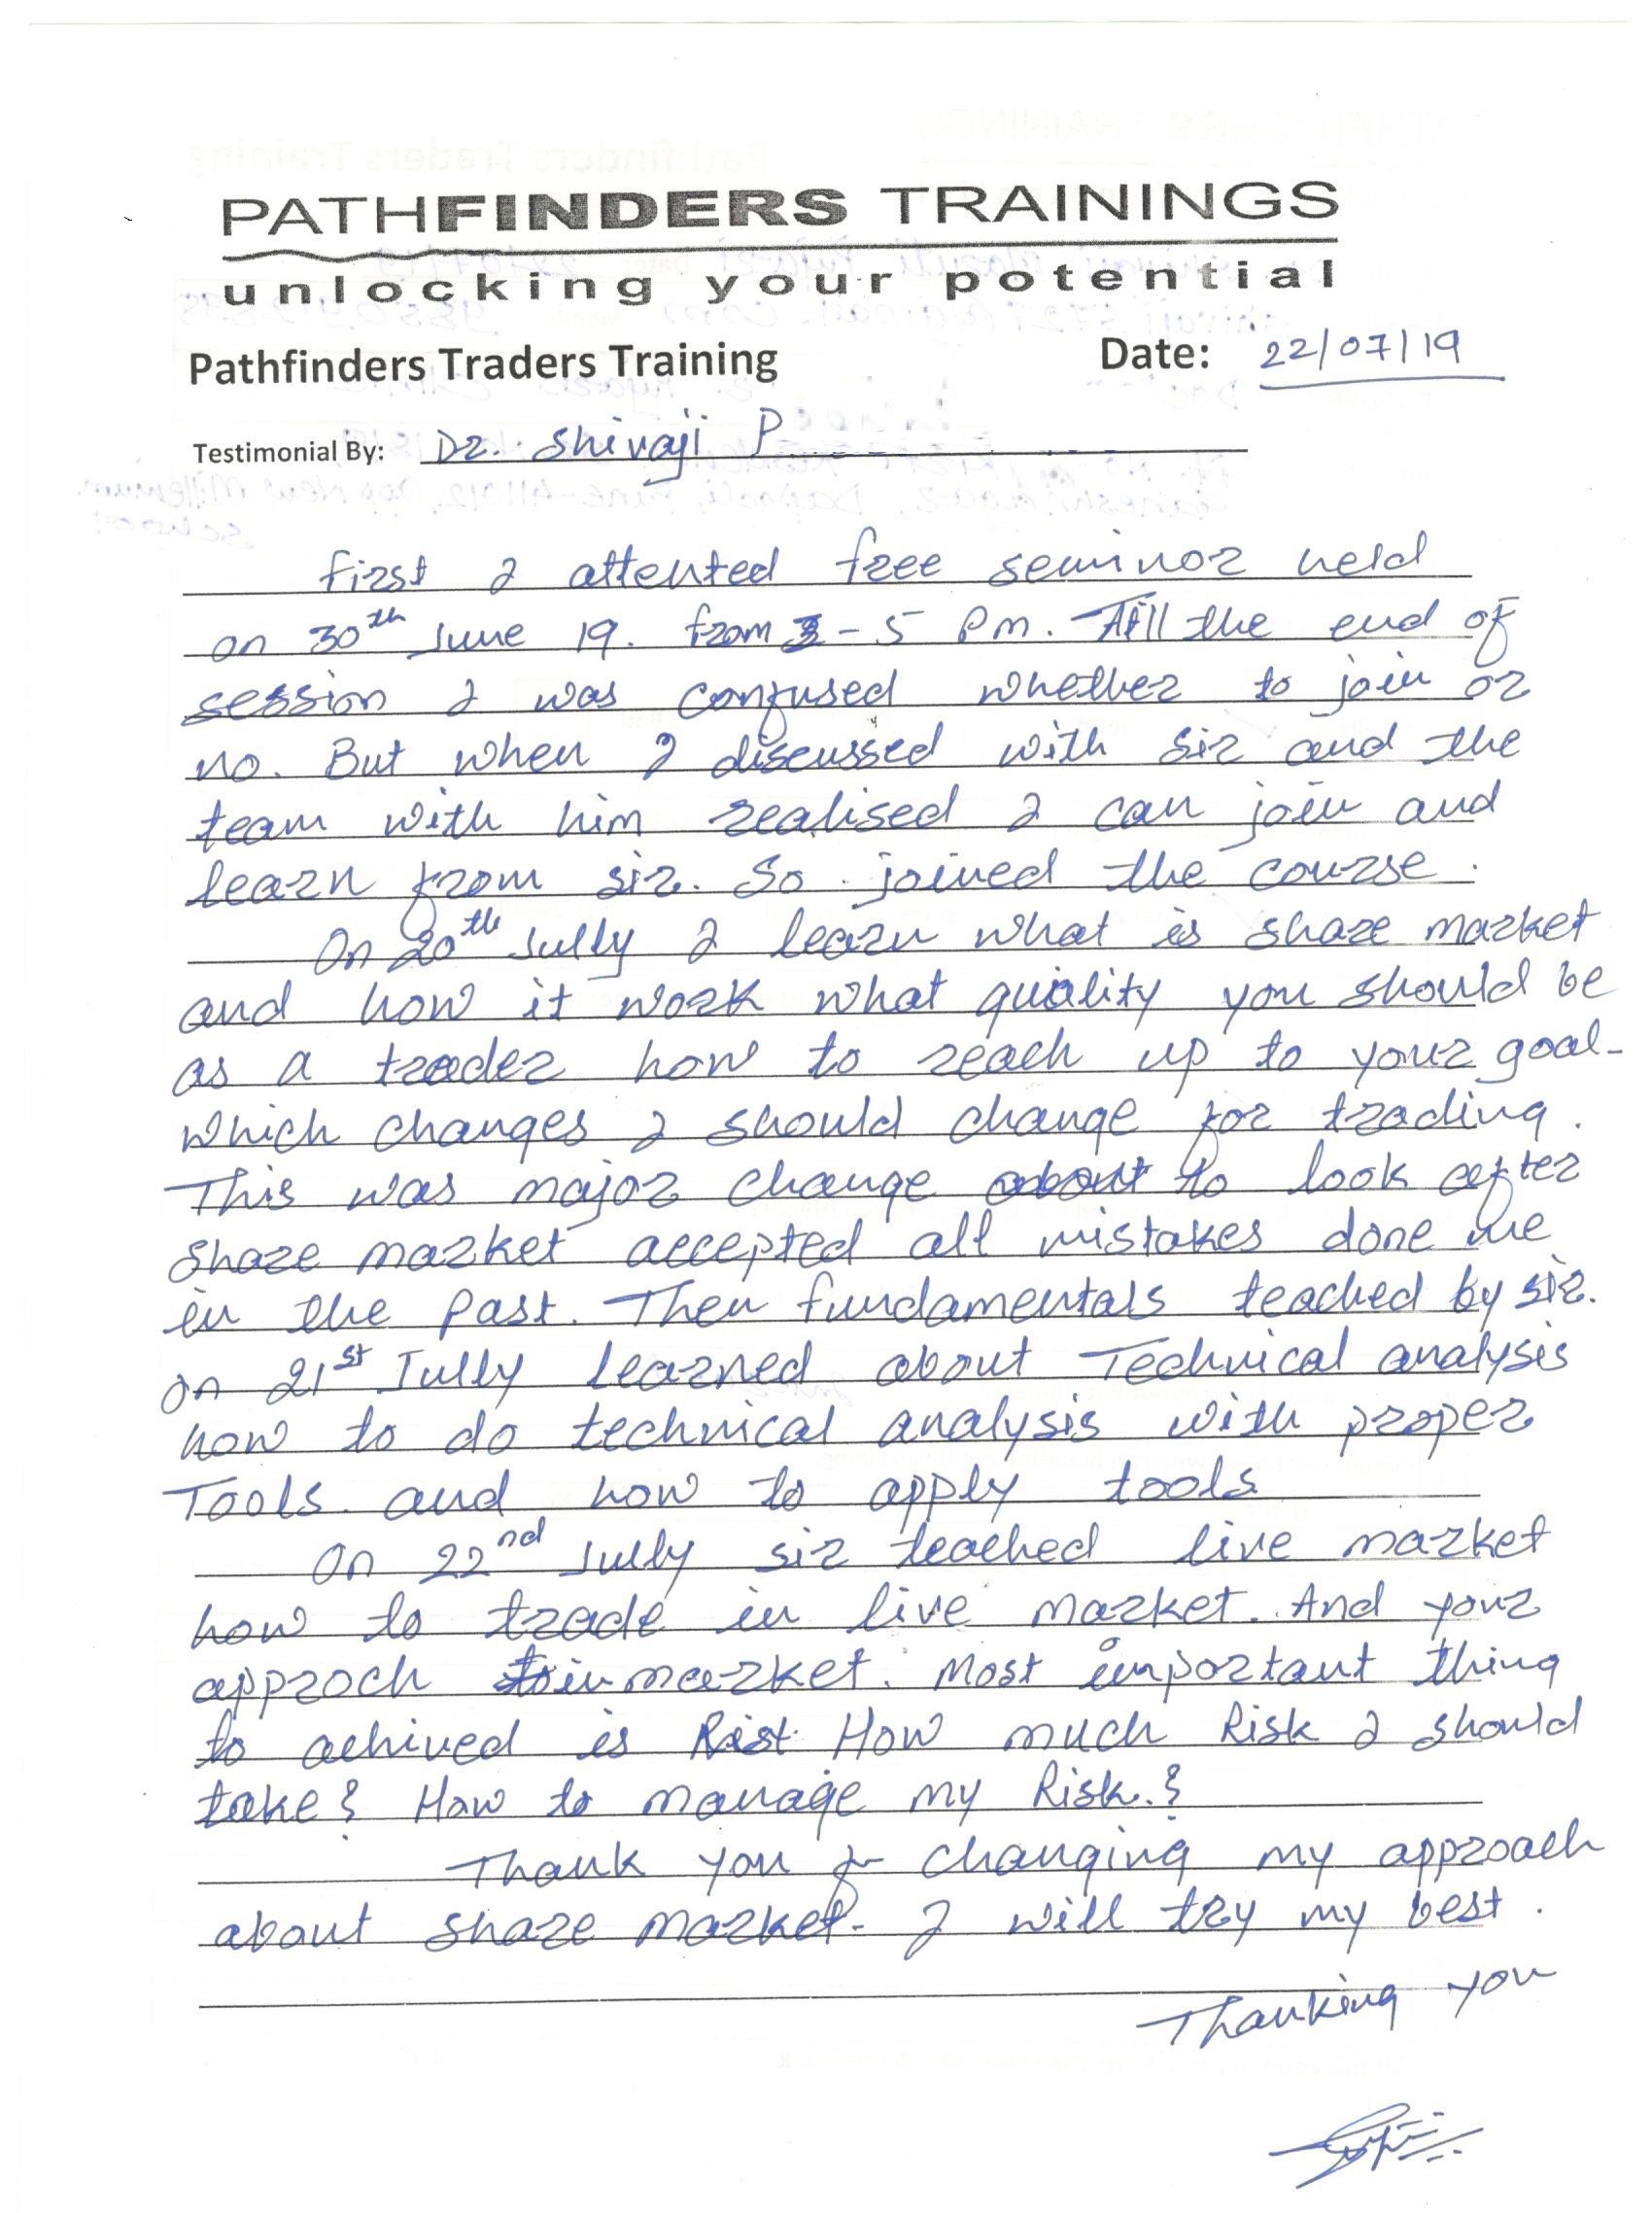 PATHFINDERS TRAININGS
unlocking your potential
Pathfinders Traders Training Date: 22/07/19
Testimonial By: Dr. Shivaji P
First I attented free seminor held
on 30th June 19. from 3-5 Pm. Till the end of
session I was confused whether to join or
no. But when I discussed with sir and the
team with him realised I can join and
learn from sir. So joined the course.
On 20th Jully I learn what is share market
and how it work what quality you should be
as a trader how to reach up to your goal-
which changes I should change for trading.
This was major change about to look after
share market accepted all mistakes done me
in the Past. Then fundamentals teached by sir.
on 21st Jully learned about Technical analysis
how to do technical analysis with proper
Tools. and how to apply tools
On 22nd Jully sir teached live market
how to trade in live market. And your
approch in market. Most important thing
to achived is Risk How much Risk I should
take? How to manage my Risk.?
Thank you for changing my approach
about share market- I will try my best.
Thanking you